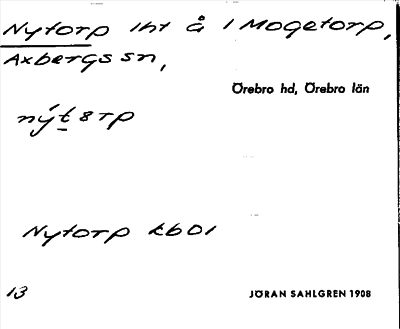 Nytorp lht å 1 Mogetorp,
Axbergs sn,
Örebro hd, Örebro län
nýt8rp
Nytorp kb01
13
JÖRAN SAHLGREN 1908